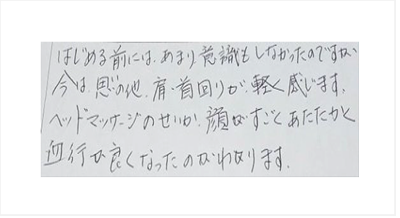 はじめる前には、あまり意識もしなかったのですが
今は、思いの他、肩・首回りが、軽く感じます。
ヘッドマッサージのせいか、顔がすごくあたたかく
血行が良くなったのがわかります。